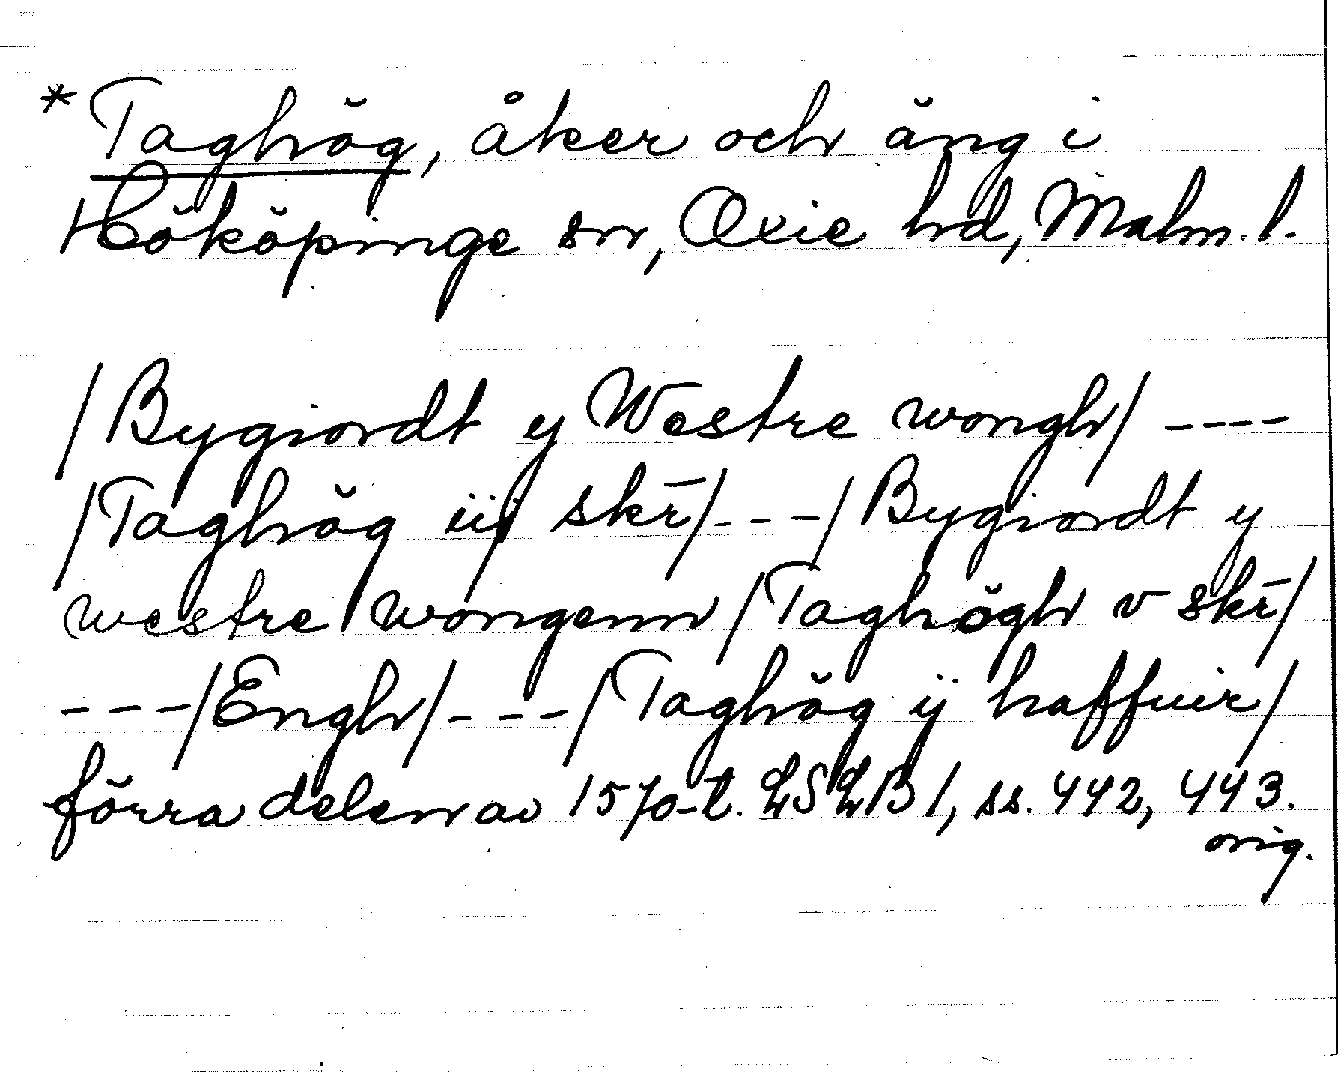 * Taghög, åker och äng i
Hököpinge sn, Oxie hd, Malm. l.
/Bygiordt y Westre wongh/ ----
/Taghög iij skr̄/---/Bygiordt y
westre wongenn/Taghögh v skr̄/
---/Engh/---/Taghög ij haffuir/
förra delen av 1570-t. LSLB 1, ss. 442, 443.
orig.